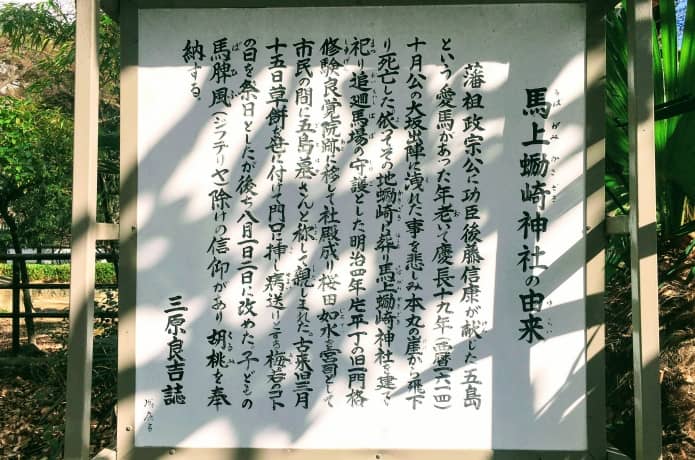 馬上蛎崎神社の由来
藩祖政宗公に功臣後藤信康が献じた五島
という愛馬があった年老いて慶長十九年(西暦一六一四)
十月公の大坂出陣に洩れた事を悲しみ本丸の崖から飛下
り死亡した依ってその地蛎崎に葬り馬上蛎崎神社を建て
祀り追廻馬場の守護とした明治四年片平丁の旧一門格
修験良覚院跡に移して社殿成り桜田如水を宮司として
市民の間に五島墓さんと称して親しまれた。古来旧三月
十五日草餅を笹に付けて門口に挿し病送りとする梅若コト
の日を祭日としたが後ち八月一日二日に改めた、子どもの
馬脾風(ジフテリヤ)除けの信仰があり胡桃を奉
納する。
三原良吉誌